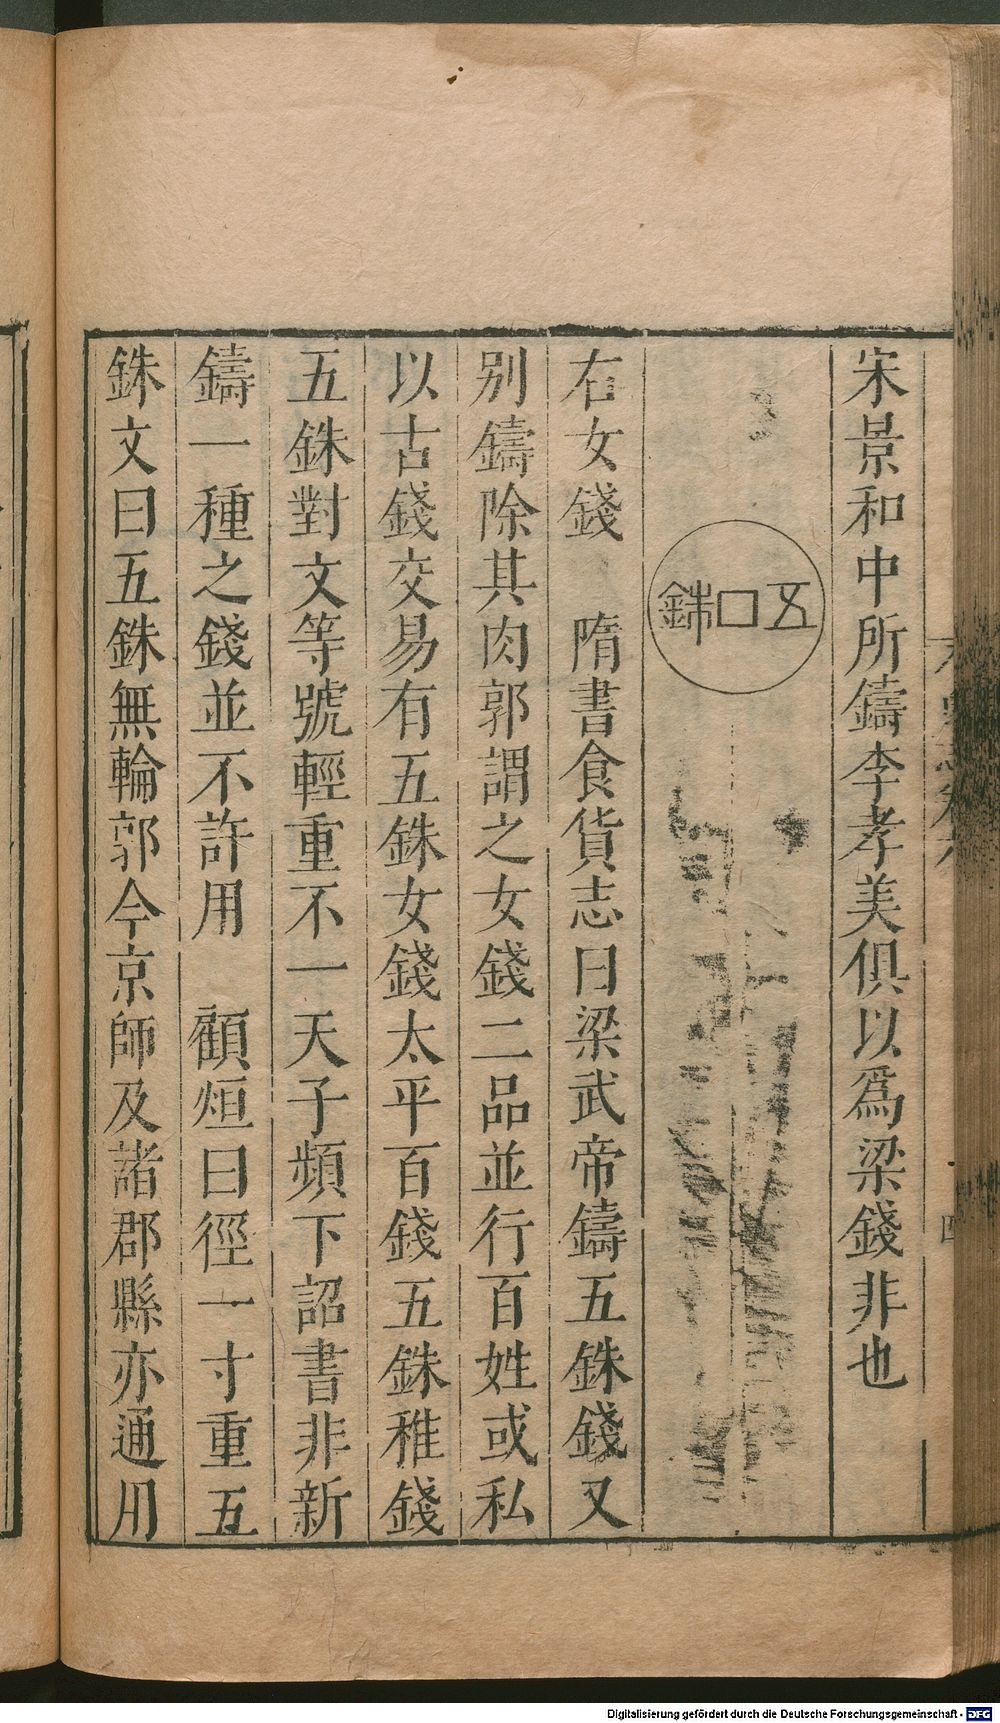 宋景和中所鑄李孝美俱以為梁錢非也
五銖
右女錢　隋書食貨志曰梁武帝鑄五銖錢又
別鑄除其肉郭謂之女錢二品並行百姓或私
以古錢交易有五銖女錢太平百錢五銖稚錢
五銖對文等號輕重不一天子頻下詔書非新
鑄一種之錢並不許用　顧烜曰徑一寸重五
銖文曰五銖無輪郭今京師及諸郡縣亦通用
Digitalisierung gefördert durch die Deutsche Forschungsgemeinschaft - DFG